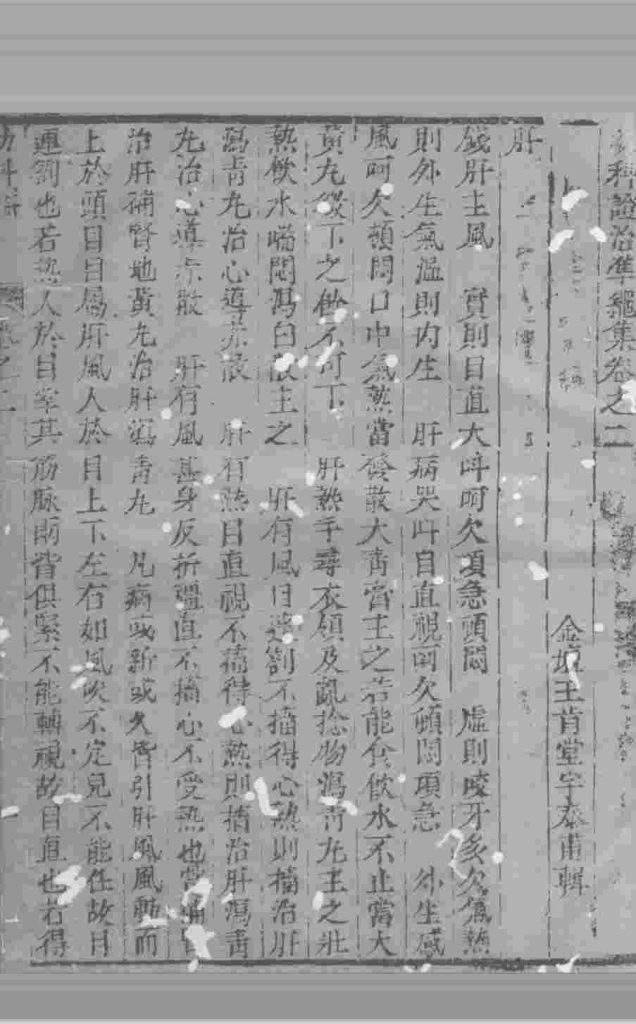 科證治準繩集卷之二
金壇王肯堂宇泰甫輯
肝
錢肝主風　實則目直大呌呵欠項急頓悶　虛則咬牙多欠氣熱
則外生氣溫則內生　肝病哭呌目直視呵欠頓悶項急　外生感
風呵欠頓悶口中氣熱當發散大青膏主之若能食飲水不止當大
黃丸微下之他不可下　肝熱手尋衣領及亂捻物瀉青丸主之壯
熱飲水喘悶瀉白散主之　肝有風目連劄不搐得心熱則搐治肝
瀉青丸治心導赤散　肝有熱目直視不搐得心熱則搐治肝瀉青
丸治心導赤散　肝有風甚身反折彊直不搐心不受熱也當補腎
治肝補腎地黃丸治肝瀉青丸　凡病或新或久皆引肝風風動而
上於頭目目屬肝風入於目上下左右如風吹不定兒不能任故目
連劄也若熱入於目牽其筋脉兩眥俱緊不能轉視故目直也若得
卷之二